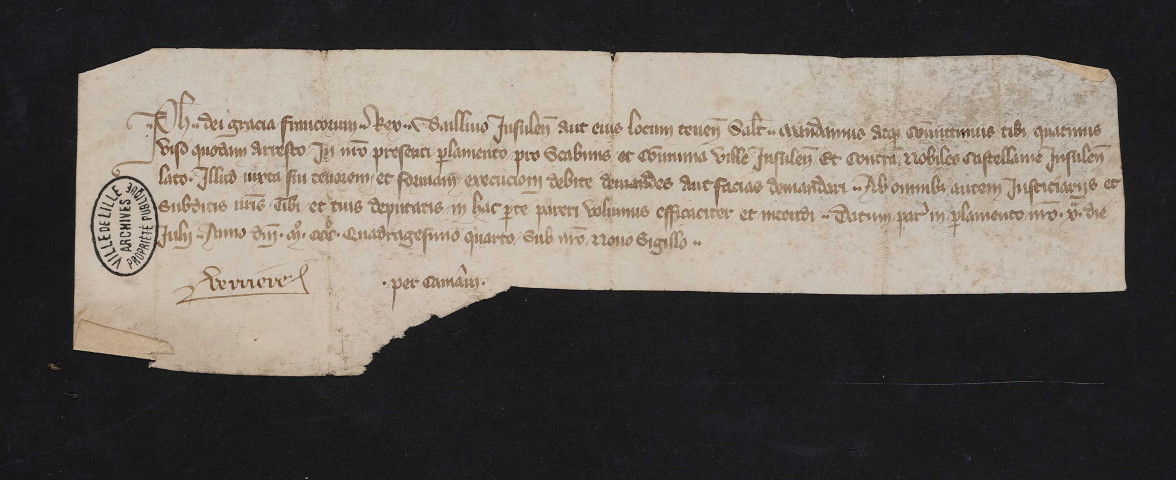 Ph. dei gracia francorum Rex Baillivo Insulen aut eius locum tenen Salt. Mandamus atque Comittimus tibi quatinus
viso quodam arresto In nro presenti parlamento pro Scabinis et Comunia ville Insulen Et Contra Nobiles Castellanie Insulen
lato. Illud iuxta sui tenorem et formam execucioni debite demandes aut facias demandari. Ab omnibus autem Justiciariis et
Subditis nris Tibi et tuis deputatis in hac parte pareri volumus efficaciter et intendi. Datum par in parlamento nro. xa die
Julii. Anno dni. mo. ccco. Quadragesimo quarto. Sub nro. Novo Sigillo.
Verriere
per Camam.
VILLE DE LILLE
ARCHIVES
PROPRIÉTÉ PUBLIQUE